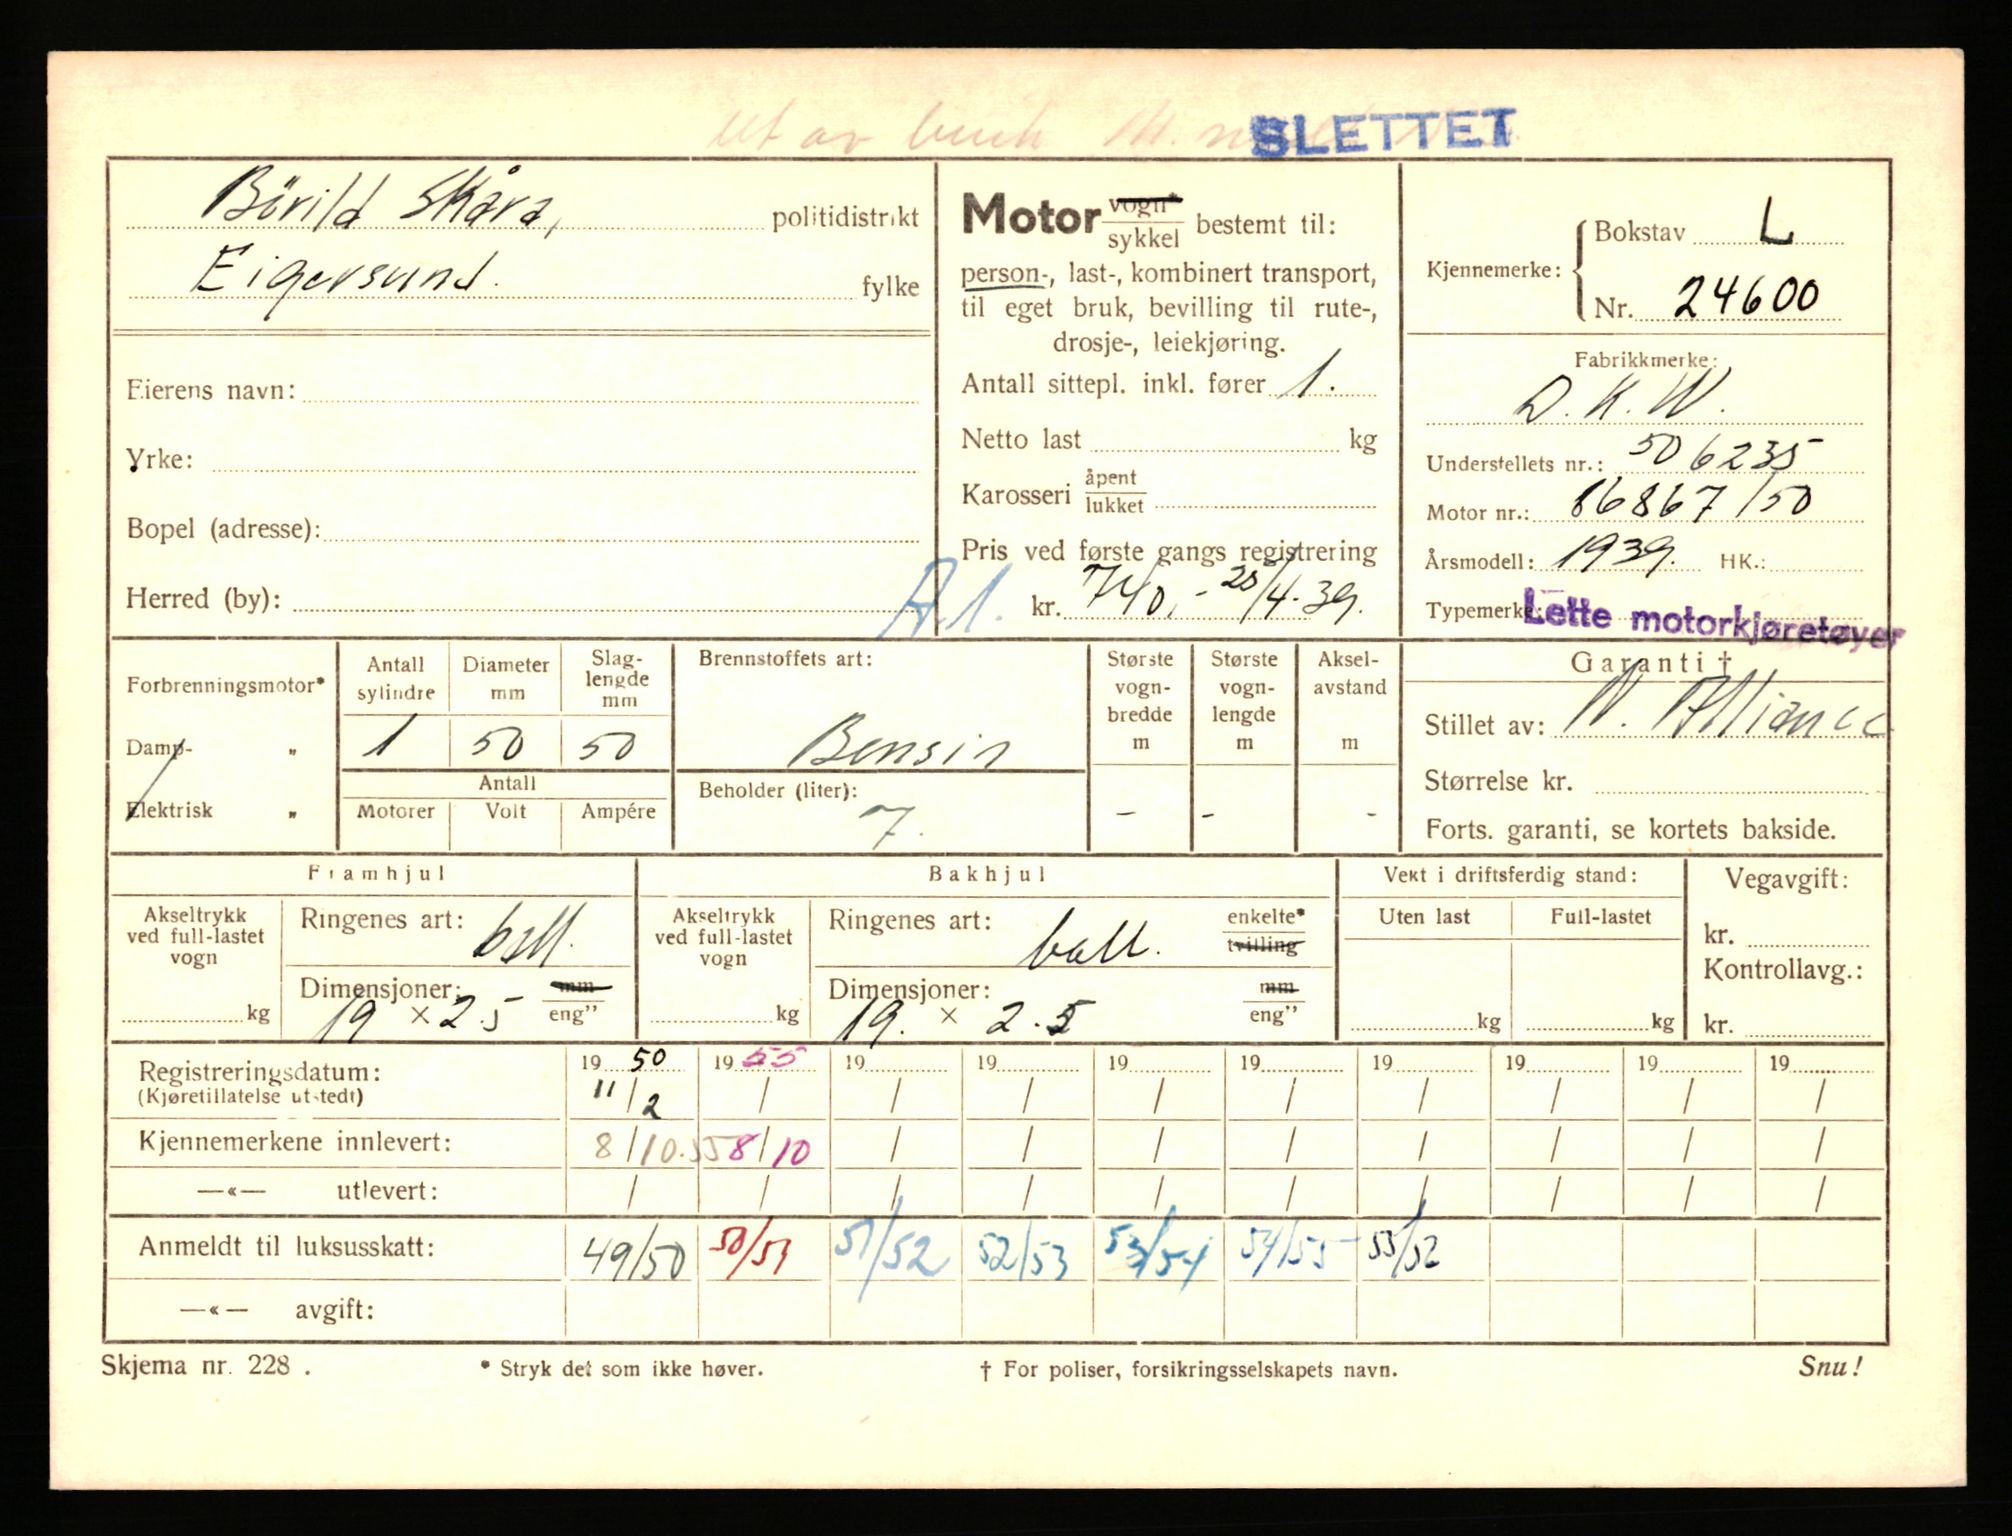 Ut av bruk
SLETTET
Bårild Skåra, politidistrikt
Eigersund. fylke
Eierens navn:
Yrke:
Bopel (adresse):
Herred (by):
A.1.
Motor vogn* / sykkel bestemt til:
person-, last-, kombinert transport,
til eget bruk, bevilling til rute-,
drosje-, leiekjøring.
Antall sittepl. inkl. fører 1.
Netto last kg
Karosseri åpent / lukket
Pris ved første gangs registrering
kr. 740,- 28/4-39.
Kjennemerke: Bokstav L
Nr. 24600
Fabrikkmerke:
D.K.W.
Understellets nr.: 506235
Motor nr.: 86867/50
Årsmodell: 1939. HK.:
Typemerke: Lette motorkjøretøyer
Forbrenningsmotor*
Damp- „
Elektrisk „
Antall sylindre 1
Diameter mm 50
Slag-lengde mm 50
Antall
Motorer Volt Ampére
Brennstoffets art:
Bensin
Beholder (liter):
7.
Største vogn-bredde m -
Største vogn-lengde m -
Aksel-avstand m -
Garanti †
Stillet av: N. Alliance
Størrelse kr.
Forts. garanti, se kortets bakside.
Framhjul
Akseltrykk ved full-lastet vogn kg
Ringenes art: ball.
Dimensjoner: mm / eng"
19 × 2.5
Bakhjul
Akseltrykk ved full-lastet vogn kg
Ringenes art: ball. enkelte* / tvilling
Dimensjoner: mm / eng"
19. × 2.5
Vekt i driftsferdig stand:
Uten last Full-lastet
kg kg
Vegavgift:
kr.
Kontrollavg.:
kr.
Registreringsdatum: 19 50 19 55 19 19 19 19 19 19 19 19
(Kjøretillatelse utstedt) 11/2 / / / / / / / / /
Kjennemerkene innlevert: 8/10.55 8/10 / / / / / / / /
—«— utlevert: / / / / / / / / / /
Anmeldt til luksusskatt: 49/50 50/51 51/52 52/53 53/54 54/55 55/52
—«— avgift:
Skjema nr. 228 . * Stryk det som ikke høver. † For poliser, forsikringsselskapets navn. Snu!